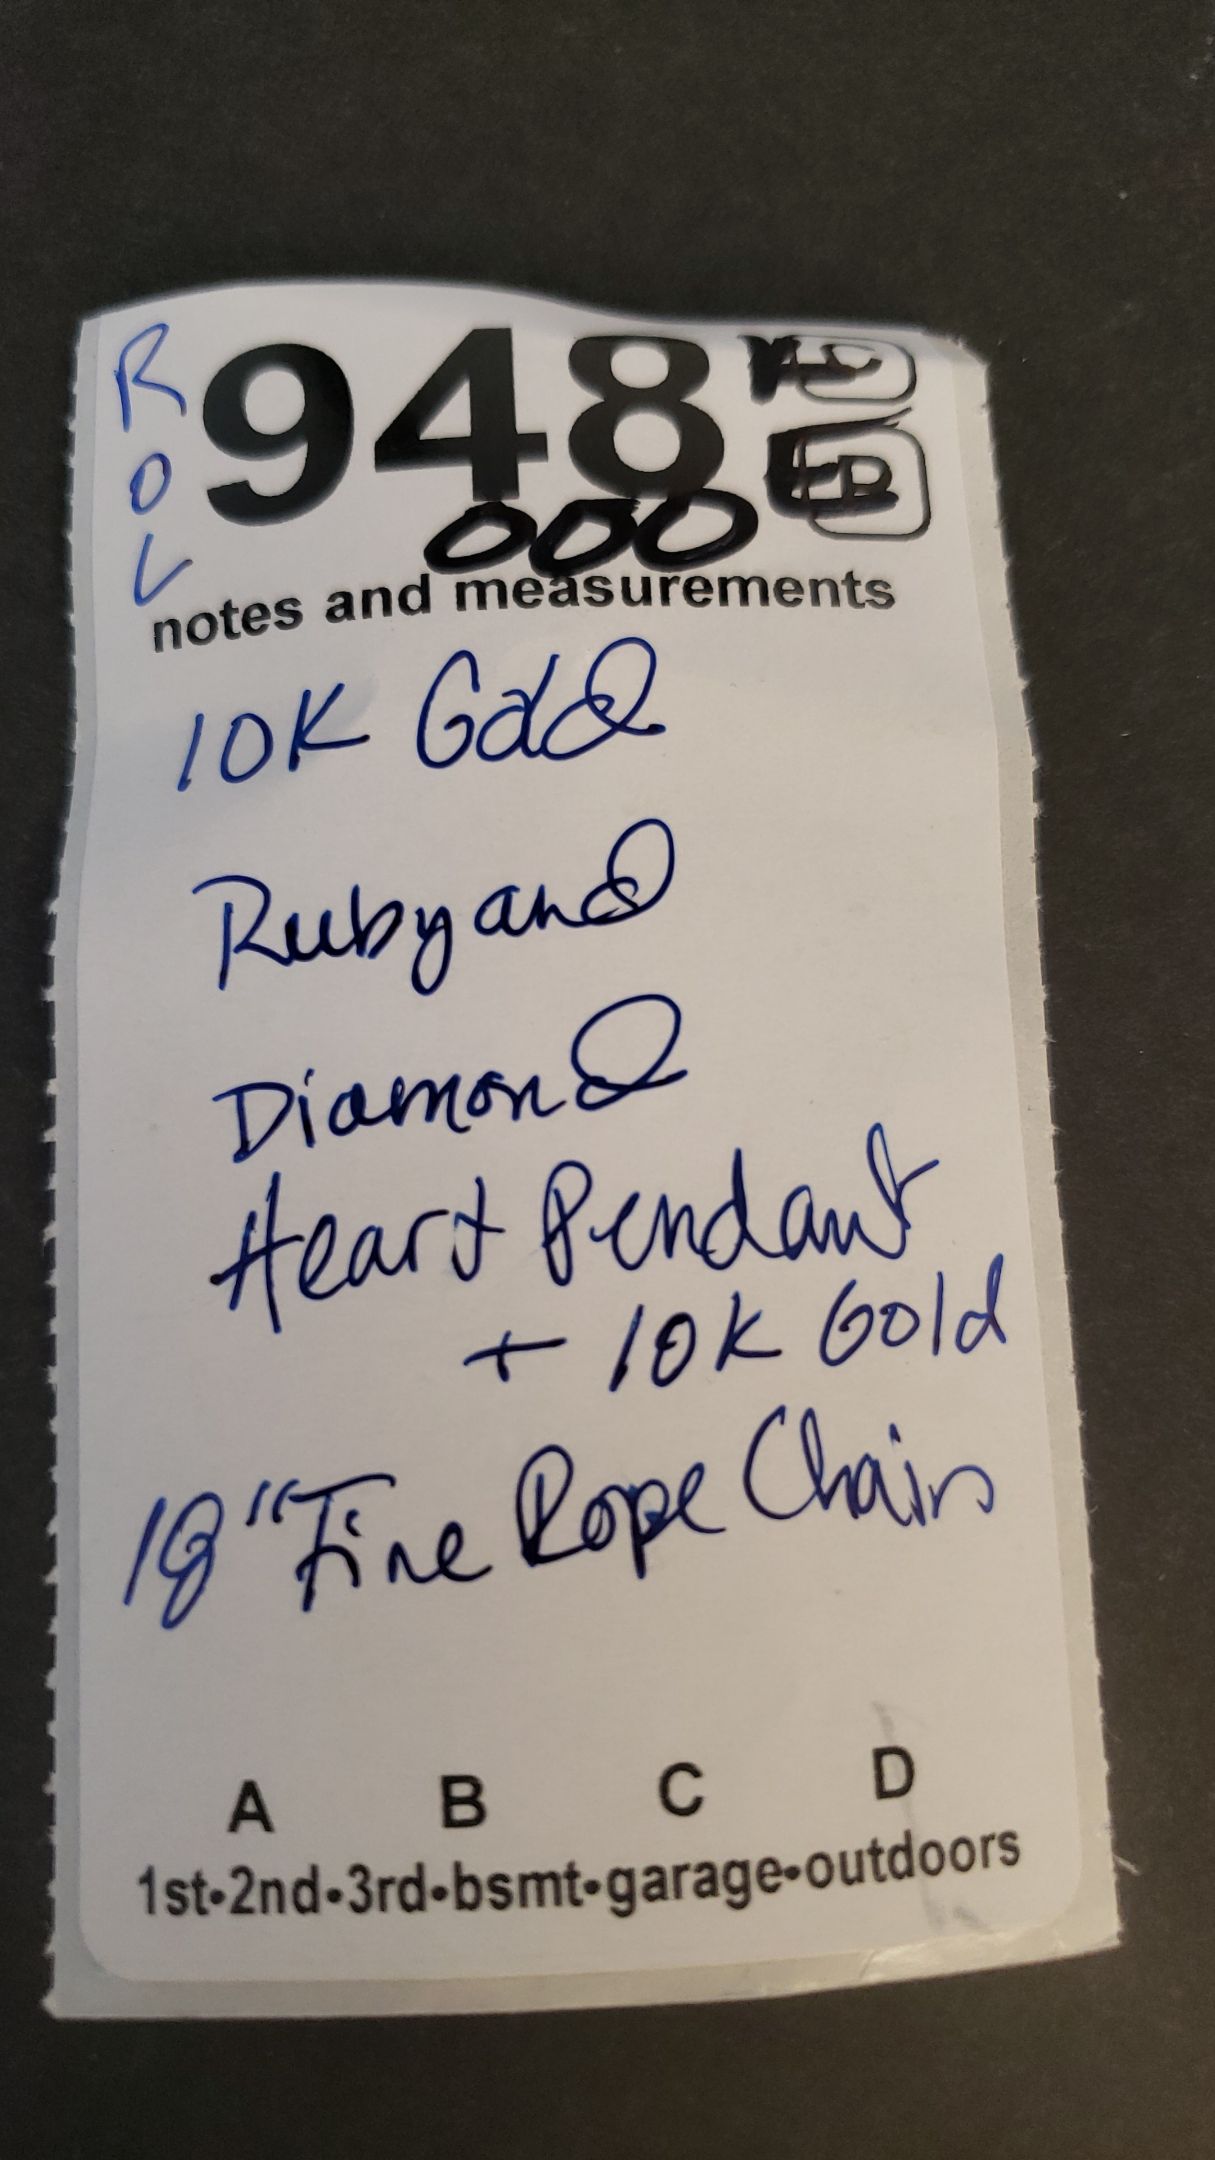 ROL
948
000
notes and measurements
10K Gold
Ruby and
Diamond
Heart Pendant
+ 10K Gold
18" Fine Rope Chain
A B C D
1st•2nd•3rd•bsmt•garage•outdoors